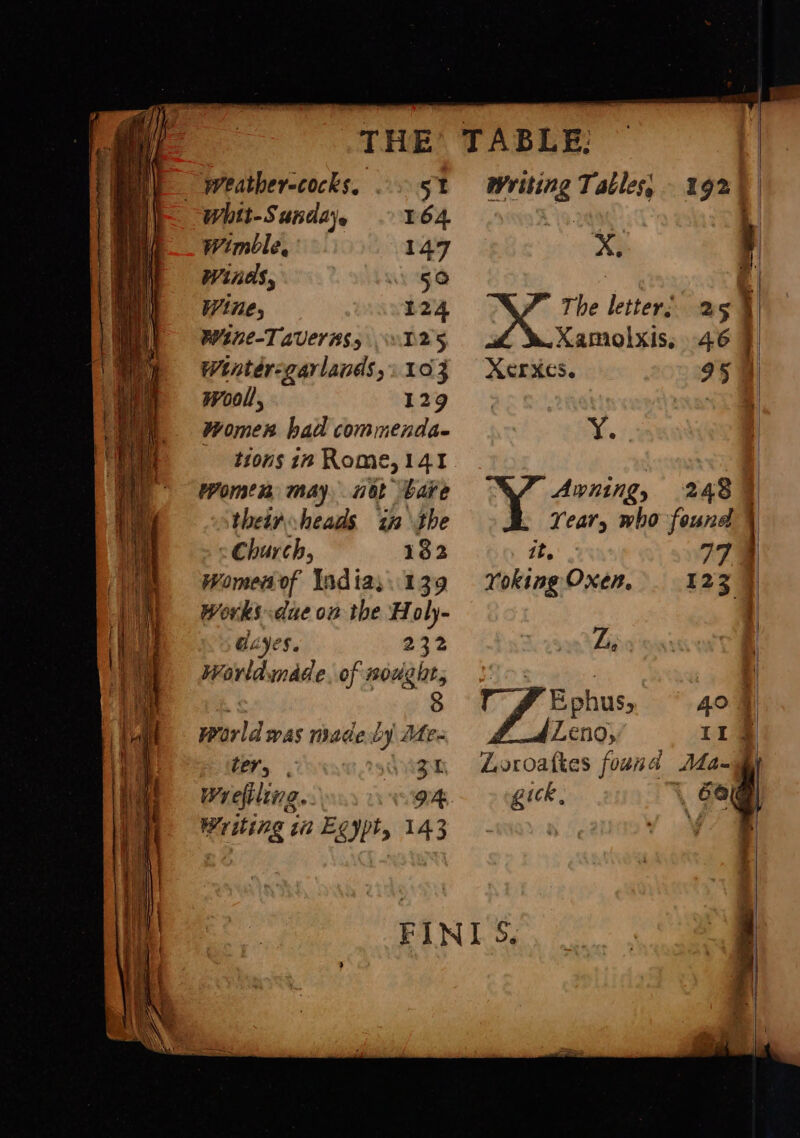 THE TABLE:
Weather-cocks. 51
Whit-Sunday. 164
Wimble, 147
Winds, 50
Wine, 124
Wine-Taverns, 125
Wintér-garlands, 103
Wooll, 129
Women had commenda-
tions in Rome, 141
Women may not bare
their heads in the
Church, 182
Women of India, 139
Works due on the Holy-
dayes. 232
World made of nought,
8
World was made by Me-
ter, 31
Wreſtling. 94
Writing in Egypt, 143
Writing Tables, 192
X.
X The letter. 25
Xamolxis, 46
Xerxes. 95
Y.
Y Awning, 248
Year, who found
it. 77
Yoking Oxen. 123
Z.
ZEphus, 40
Zeno, 11
Zoroaſtes found Ma-
gick. 60
FINIS.